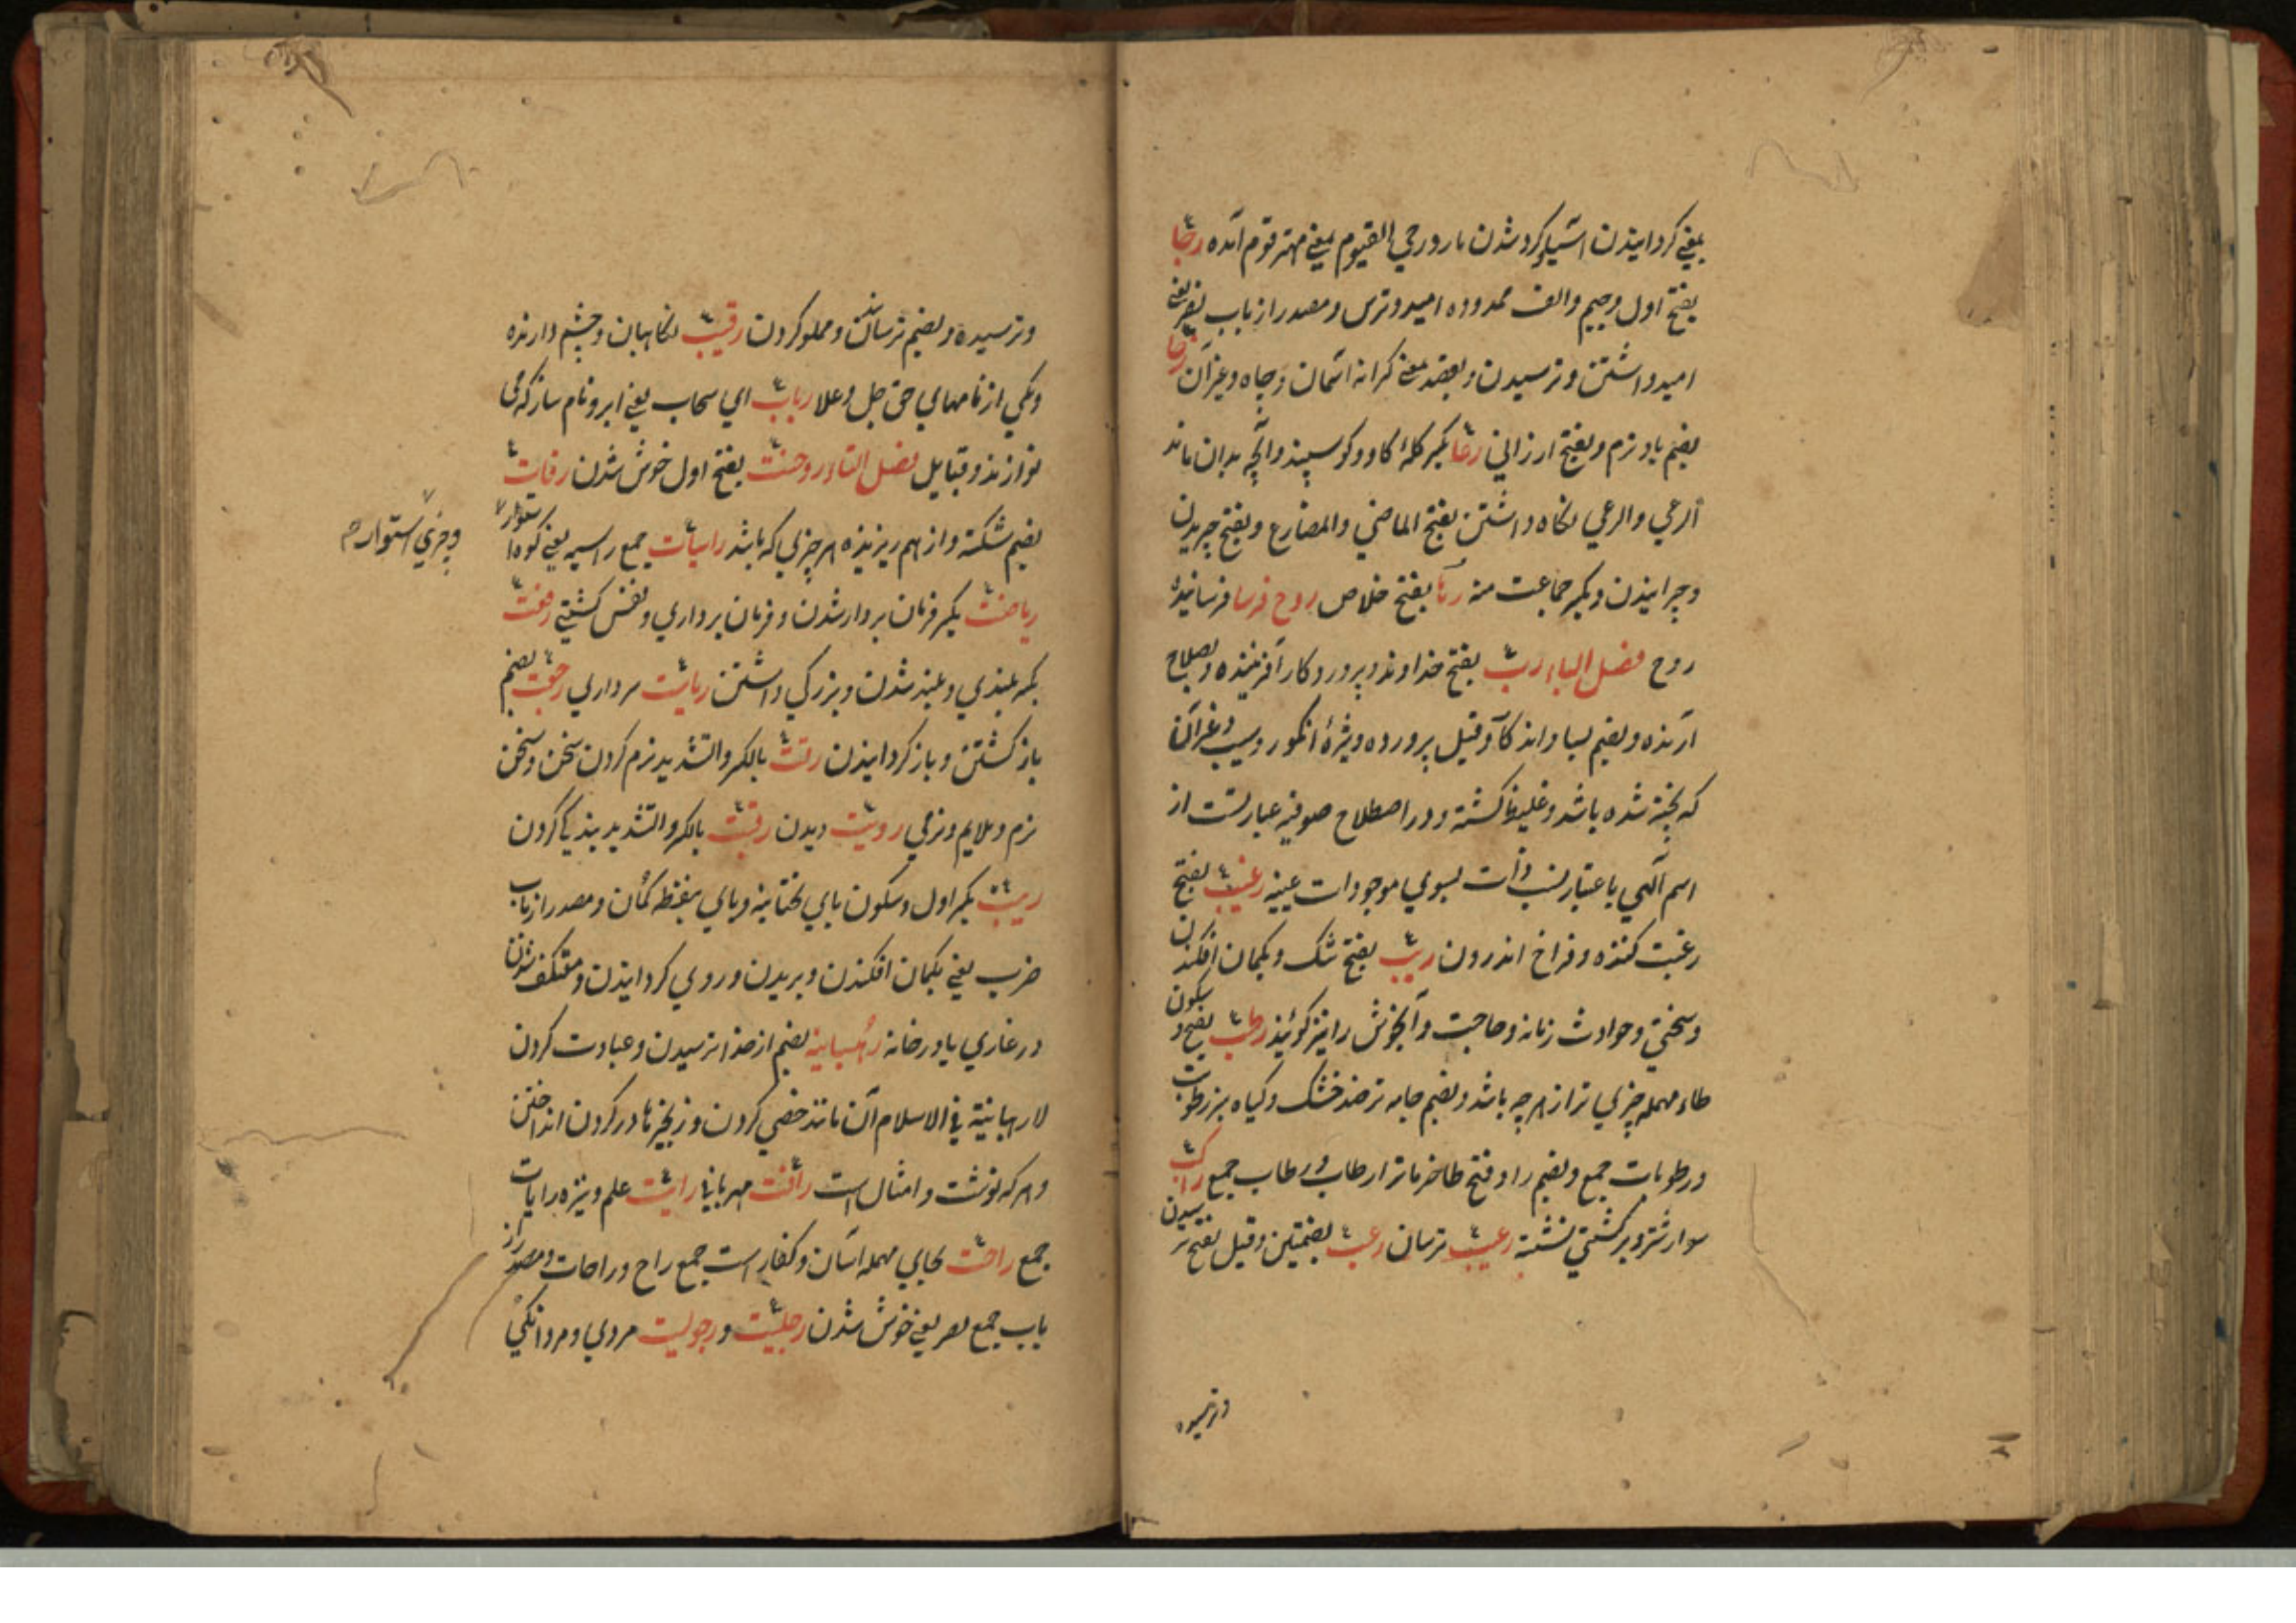 بمعنے کردانیدن آسیا و کرد شدن مار و رحی القوم بمعنے مهتر قوم آمده رجا
بفتح اول و جیم و الف ممدوده امید و ترس و مصدر از باب نصر یعنے
امید داشتن و ترسیدن و بقصر بمعنے کرانه آسمان و چاه و غیر آن رخا
بضم باد نرم و بفتح ارزانی رعا بکسر کلهٔ کاو و کوسپند و آنچه بدان ماند
الرعی و الرعی نکاه داشتن بفتح الماضی و المضارع و بفتح چریدن
و چرانیدن و بکسر جماعت منه رہا بفتح خلاص روح فرسا فرسانیدهٔ
روح فصل الباء رب بفتح خداوند و پروردکار آفریننده و بصلاح
آرنده و بضم بسا و اندکا و قیل پرورده و شیرهٔ انکور و سیب و غیر آن
که پخته شده باشد و غلیظ کشته و در اصطلاح صوفیه عبارتست از
اسم آلهی باعتبار نسب ذات بسوی موجودات عینیه رغیب بفتح
رغبت کننده و فراخ اندرون ریب بفتح شک و بکمان افکندن
و سختی و حوادث زمانه و حاجت و آبخوش را نیز کویند رطب بفتح و سکون
طاء مهمله چیزی تر از هر چه باشد و بضم جامه تر ضد خشک و کیاه سبز رطوبت
و رطوبات جمع و بضم را و فتح طا خرما تر ارطاب و رطاب جمع راکب
سوار شتر و بر کشتی نشسته رعیب ترسان رعب بضمتین و قیل بفتح ترسیدن
و ترسیده
و ترسیده و بضم ترساندن و مملو کردن رقیب نکاهبان و چشم دارنده
و یکی از نامهای حق جل و علا رباب ای سحاب یعنے ابر و نام ساز که می
نوازند و قبایل فصل التاء روحنت بفتح اول خوش شدن رفات
بضم شکسته و از هم ریزیده هر چیزی که باشد راسیات جمع راسیه یعنے کوه استوار
و چیزی استوار
ریاضت بکسر فرمان بردار شدن و فرمان برداری و نفس کشتنے رفعت
بکسر بلندی و بلند شدن و بزرکی داشتن ریاست سرداری رجعت بضم
باز کشتن و باز کردانیدن رتت بالکسر و التشدید نرم کردن سخن و سخن
نرم و ملایم و نرمی رویت دیدن رقیت بالکسر و التشدید بندکی کردن
ریبت بکسر اول و سکون یای تحتانیه و بای بنقطه کمان و مصدر از باب
ضرب یعنے بکمان افکندن و بریدن و روی کردانیدن و معتکف شدن
در غاری یا در خانه رهبانیه بضم از خدا ترسیدن و عبادت کردن
لا رهبانیة فی الاسلام آن مانند خصی کردن و زنجیرها در کردن انداختن
و ترک کوشت و امثال است رافت مهربانی رایت علم و نیزه رایات
جمع راحت بحای مهمله آسان و کف دست جمع راح و راحات و مصدر از
باب جمع بصر یعنے خوش شدن رجلیت و رجولیت مردی و مردانکی